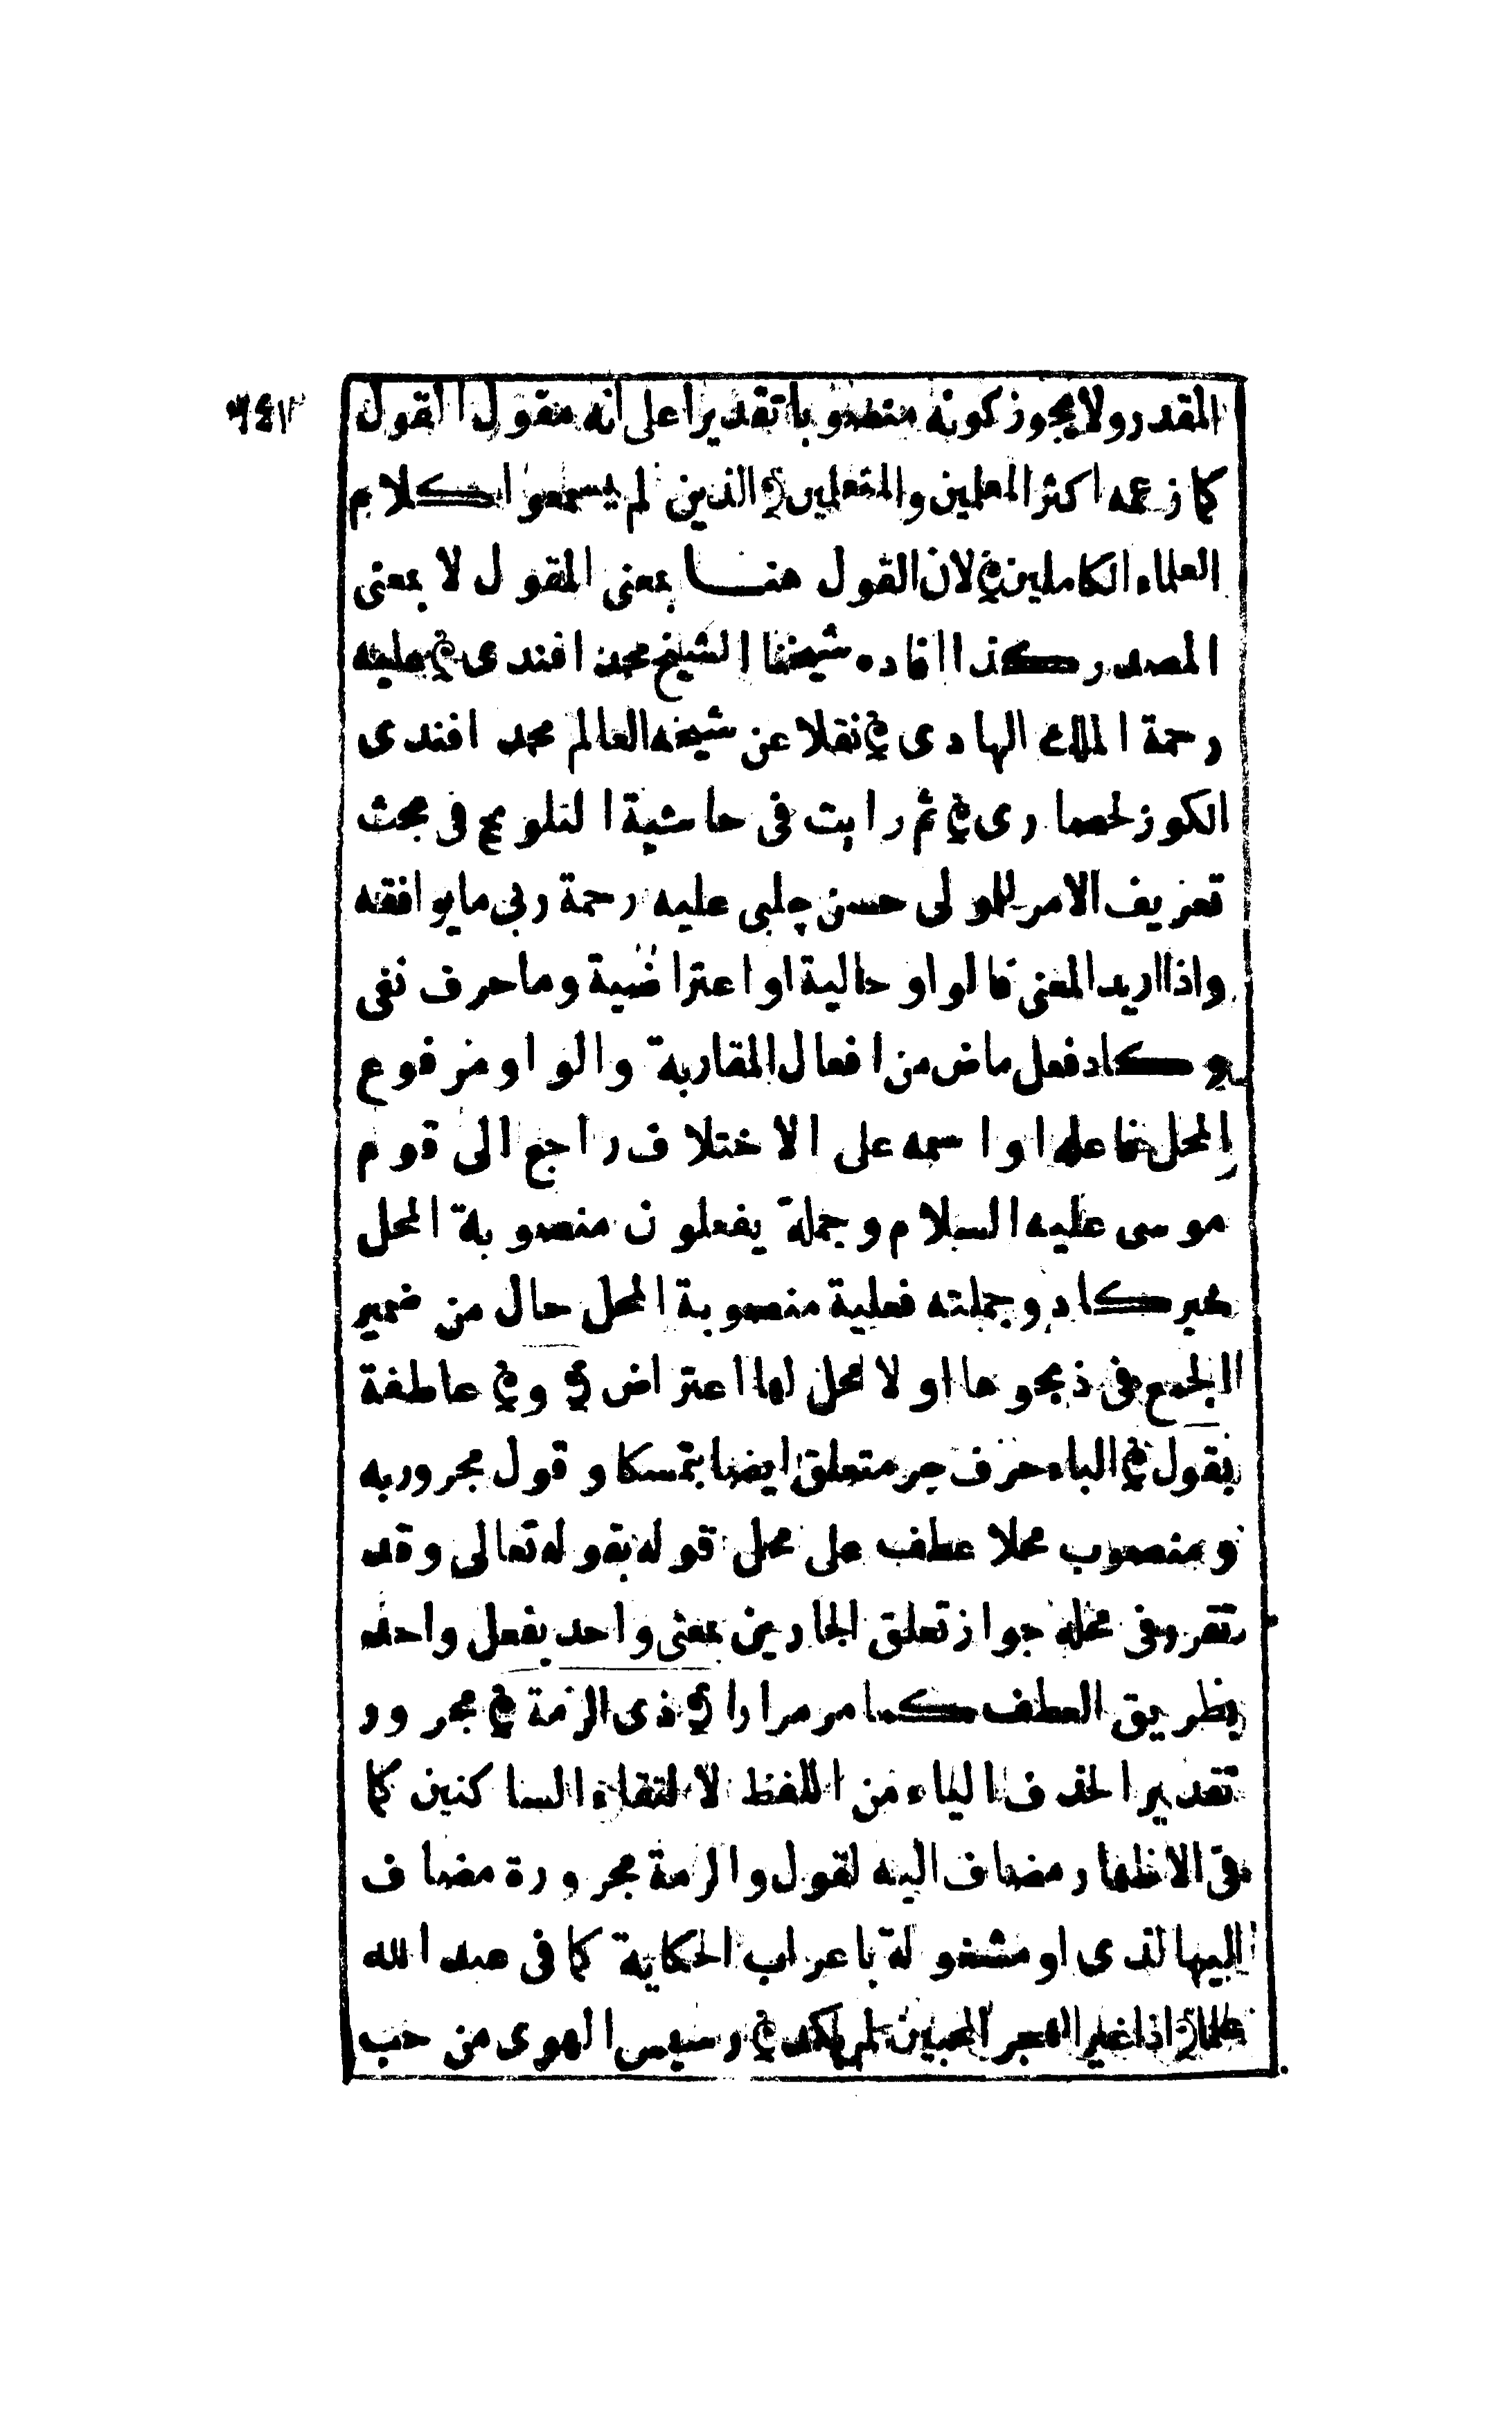 المقدر ولا يجوز كونه منصوبا تقديرا على انه مقول القول
كما زعمه اكثر المعلمين والمتعلمين الذين لم يسمعوا كلام
العلماء الكاملين لان القول هنا بمعنى المقول لا بمعنى
المصدر كذا افاده شيخنا الشيخ محمد افندى عليه
رحمة الملك الهادى نقلا عن شيخه العالم محمد افندى
الكوزلحصارى ثم رايت فى حاشية التلويح فى بحث
تعريف الامر للمولى حسن چلبى عليه رحمة ربى ما يوافقه
واذا اريد المعنى فالواو حالية او اعتراضية وما حرف نفى
وكاد فعل ماض من افعال المقاربة والواو مرفوع
المحل فاعله او اسمه على الاختلاف راجع الى قوم
موسى عليه السلام وجملة يفعلون منصوبة المحل
خبر كاد وجملته فعلية منصوبة المحل حال من ضمير
الجمع فى ذبحوها او لا محل لها اعتراض و عاطفة
بقول الباء حرف جر متعلق ايضا بتمسكا و قول مجرور به
ومنصوب محلا عطف على محل قوله بقوله تعالى وقد
تقرر فى محله جواز تعلق الجارين بمعنى واحد بفعل واحد
بطريق العطف كما مر مرارا ذى الرمة مجرور
تقديرا لحذف الياء من اللفظ لالتقاء الساكنين كما
فى الاظهار مضاف اليه لقول والرمة مجرورة مضاف
اليها لذى او مشغولة باعراب الحكاية كما فى عبد الله
علما اذا غير الهجر المحبين لم يكد رسيس الهوى من حب